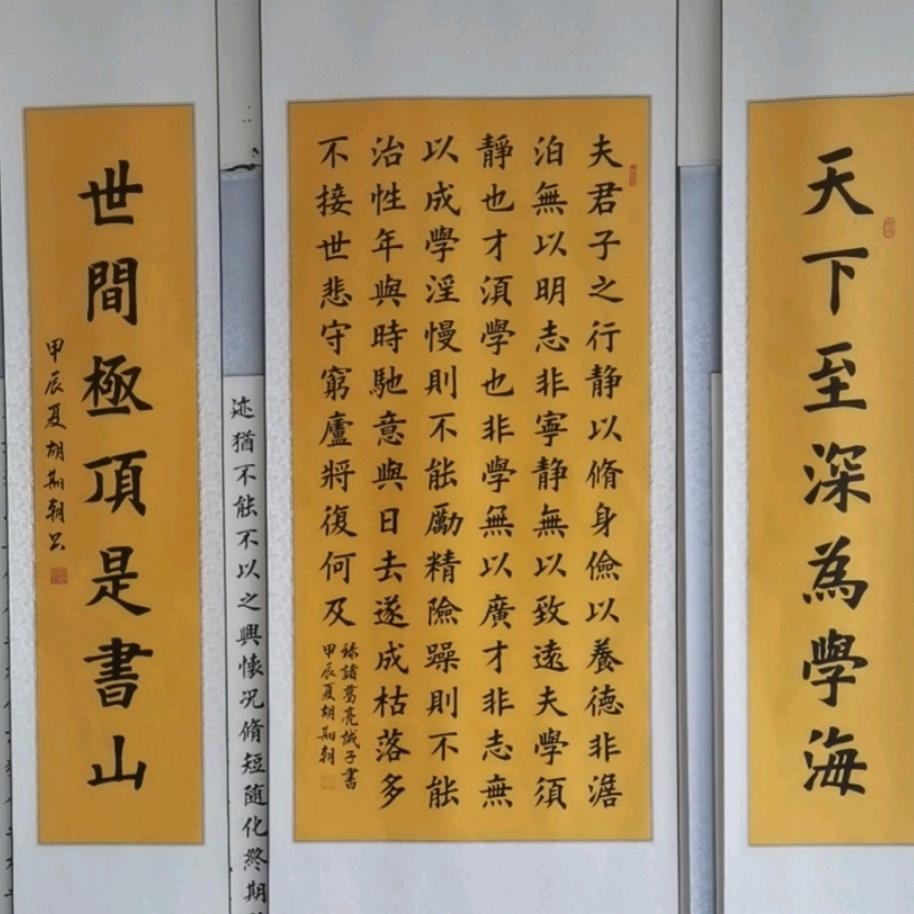 天下至深為學海
夫君子之行静以脩身儉以養德非澹
泊無以明志非寧静無以致遠夫學須
靜也才須學也非學無以廣才非志無
以成學淫慢則不能勵精險躁則不能
治性年與時馳意與日去遂成枯落多
不接世悲守窮廬將復何及
録諸葛亮誡子書
甲辰夏胡期朝
迹猶不能不以之興懷况脩短随化終期
世間極頂是書山
甲辰夏胡期朝书